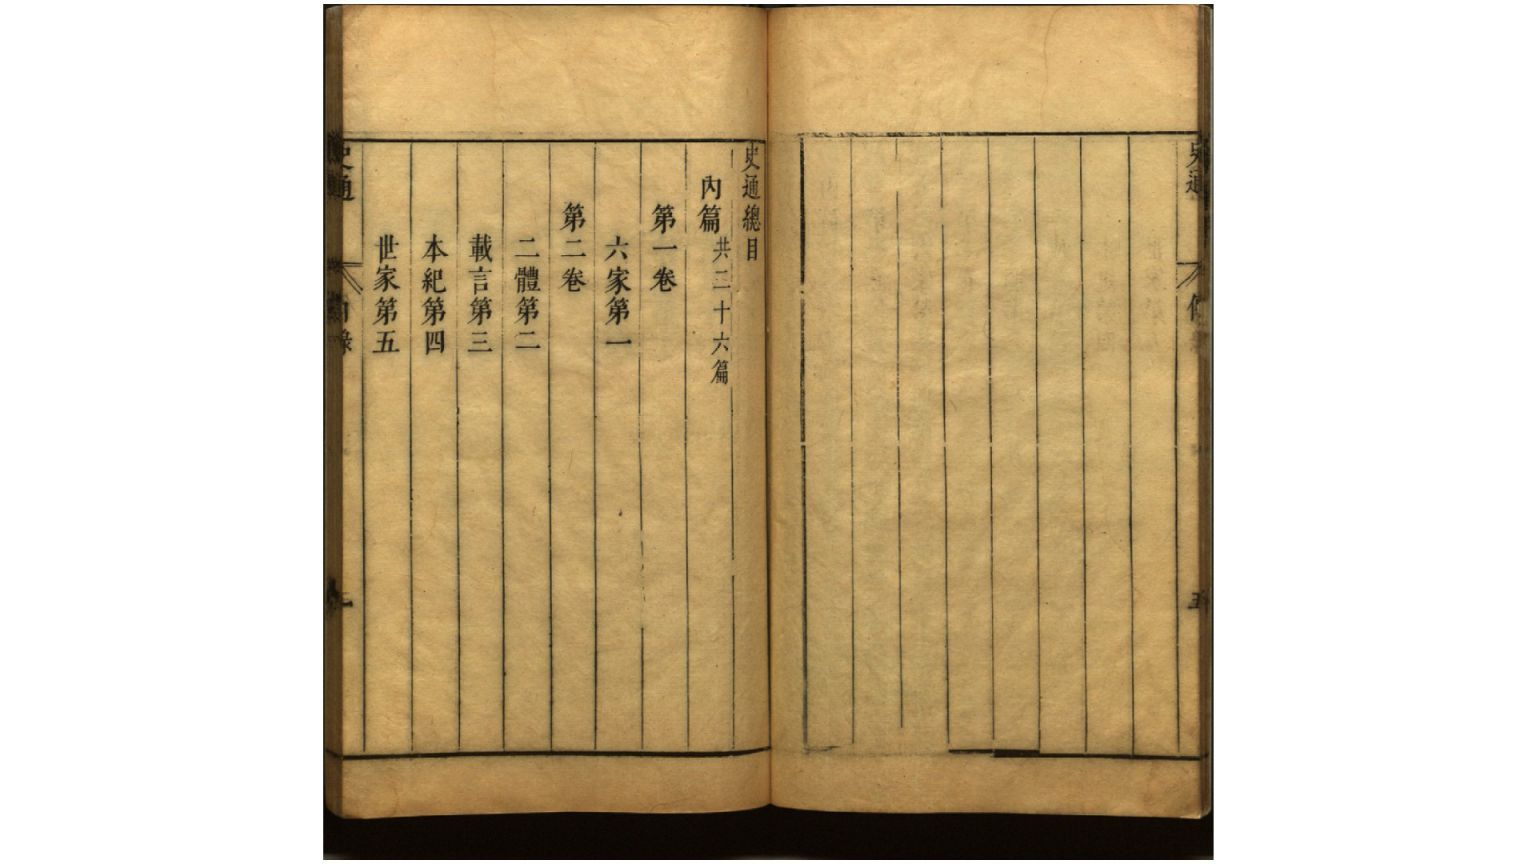 史通
五
史通總目
內篇 共三十六篇
第一卷
六家第一
第二卷
二體第二
載言第三
本紀第四
世家第五
史通
目錄